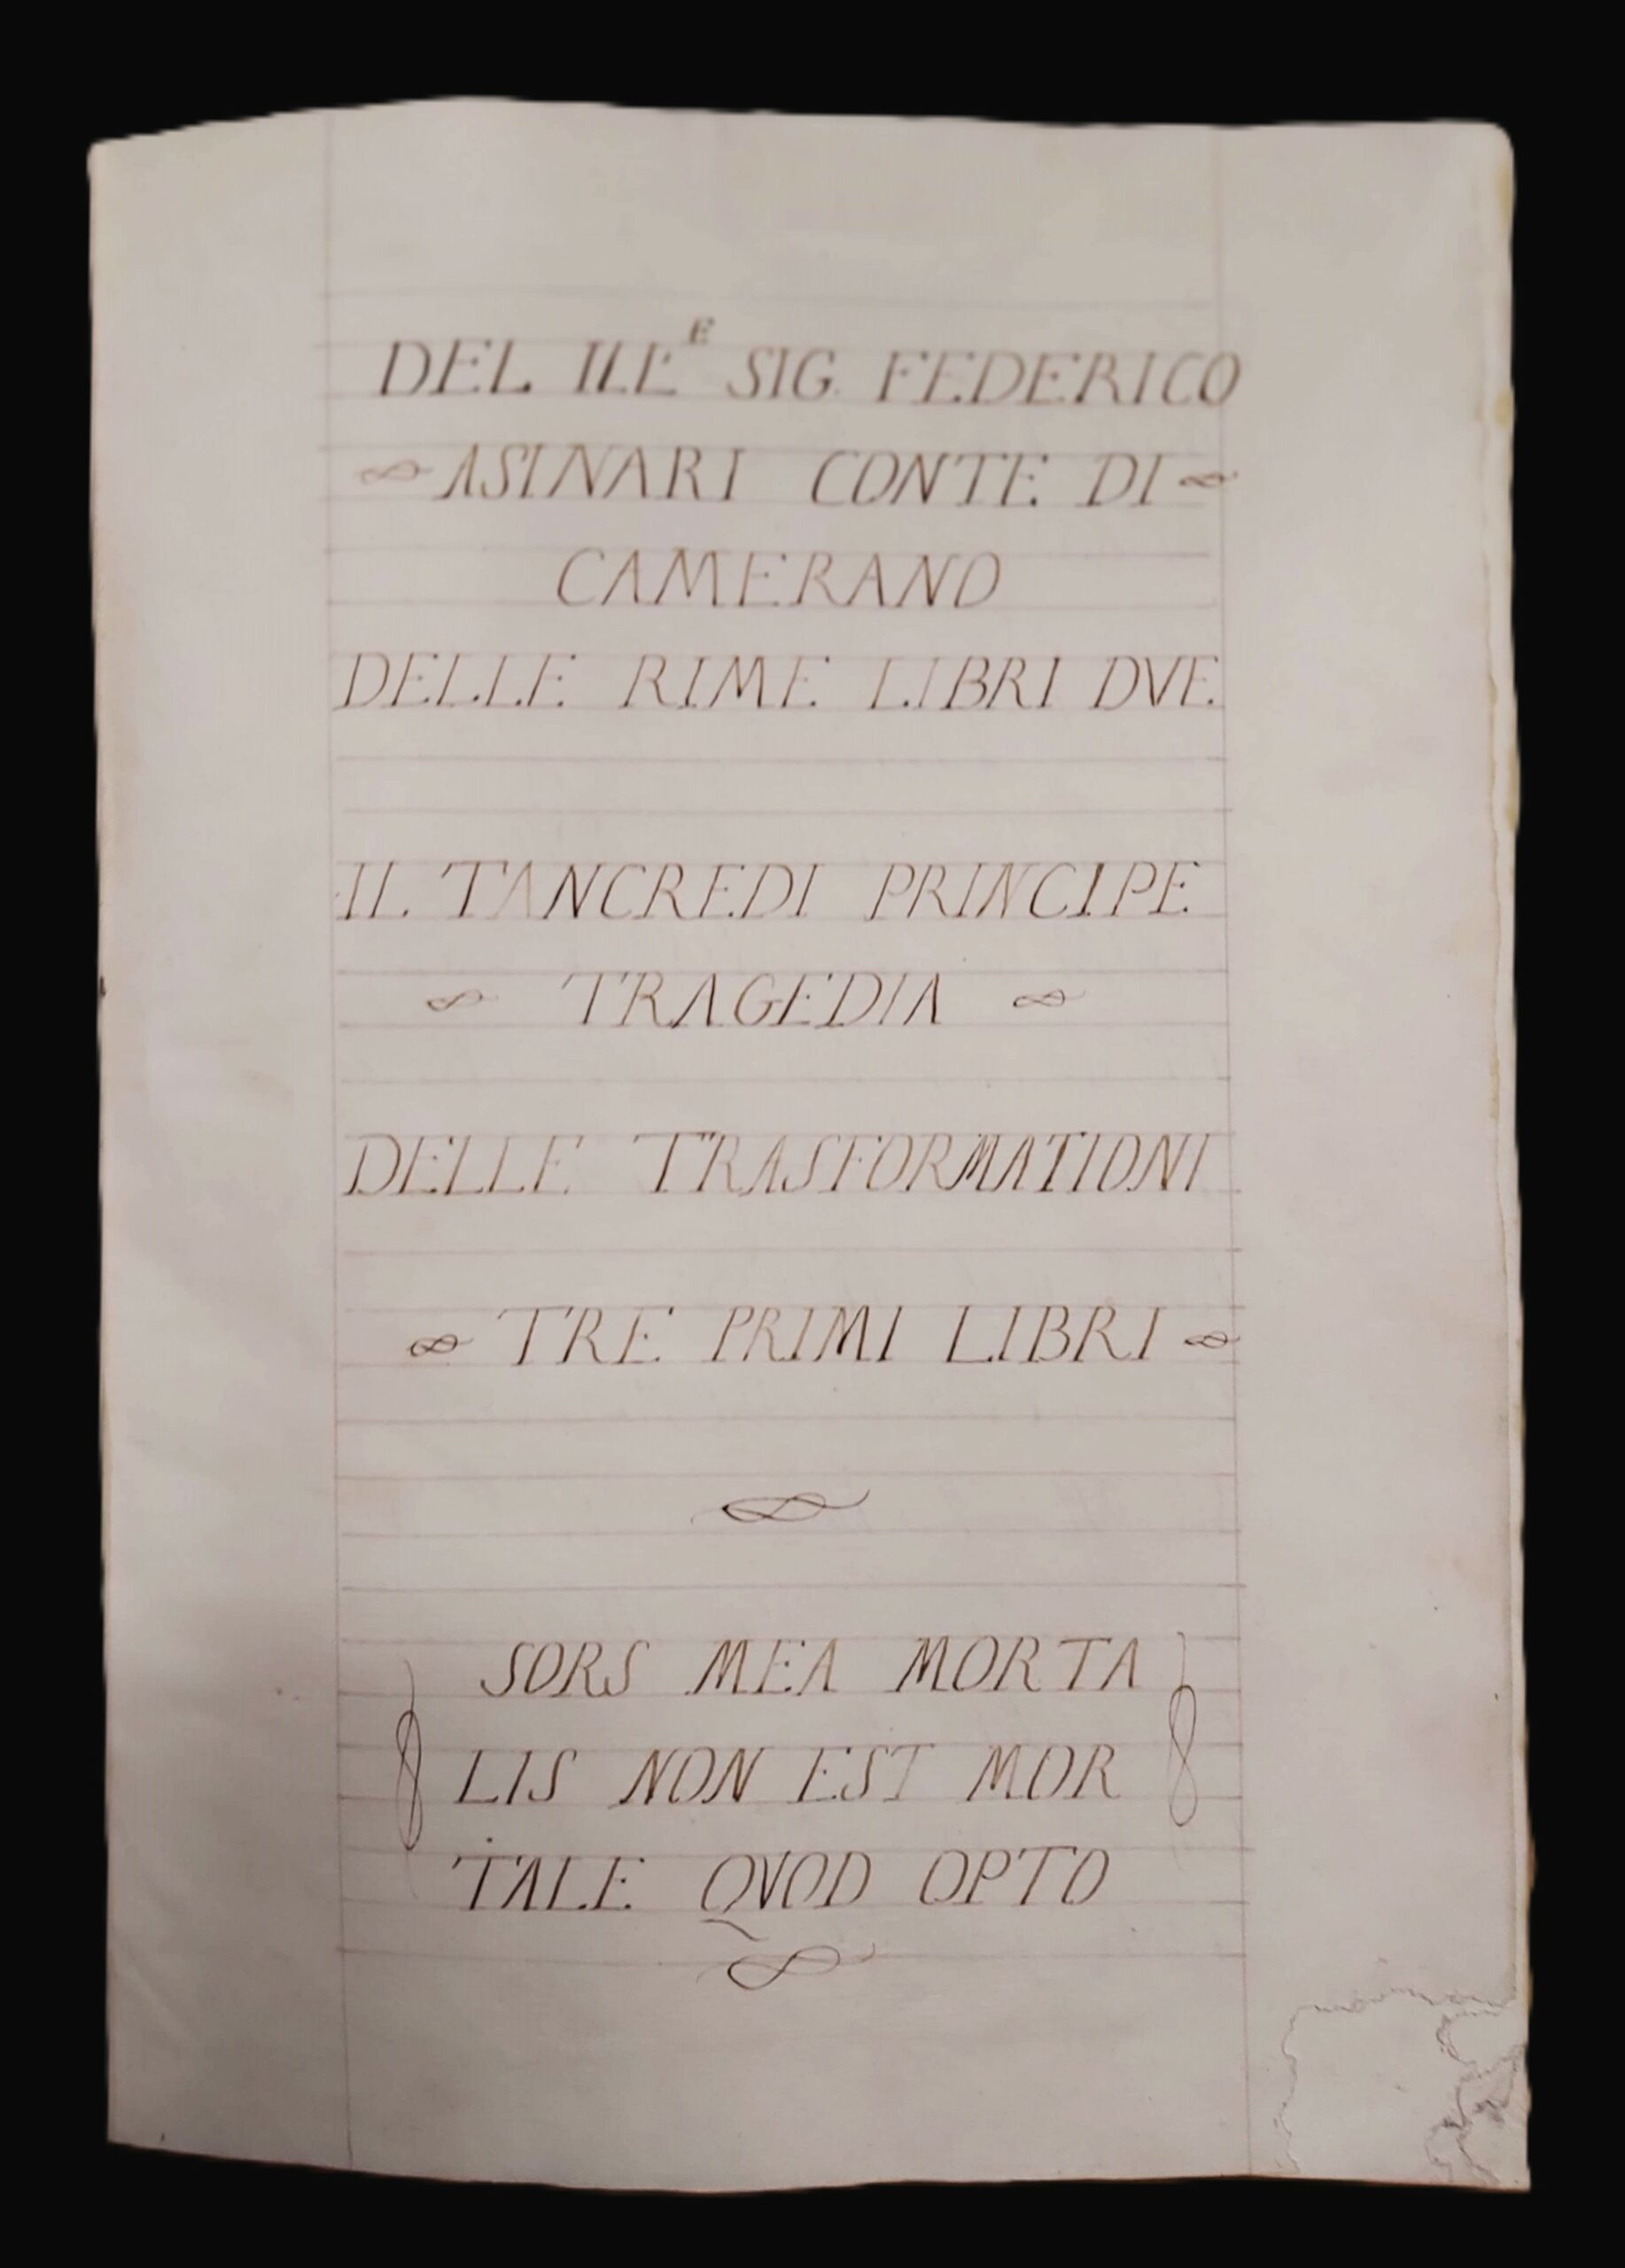 DEL ILL^E SIG. FEDERICO
ASINARI CONTE DI
CAMERANO
DELLE RIME LIBRI DVE
IL TANCREDI PRINCIPE
TRAGEDIA
DELLE TRASFORMATIONI
TRE PRIMI LIBRI
SORS MEA MORTA
LIS NON EST MOR
TALE QVOD OPTO